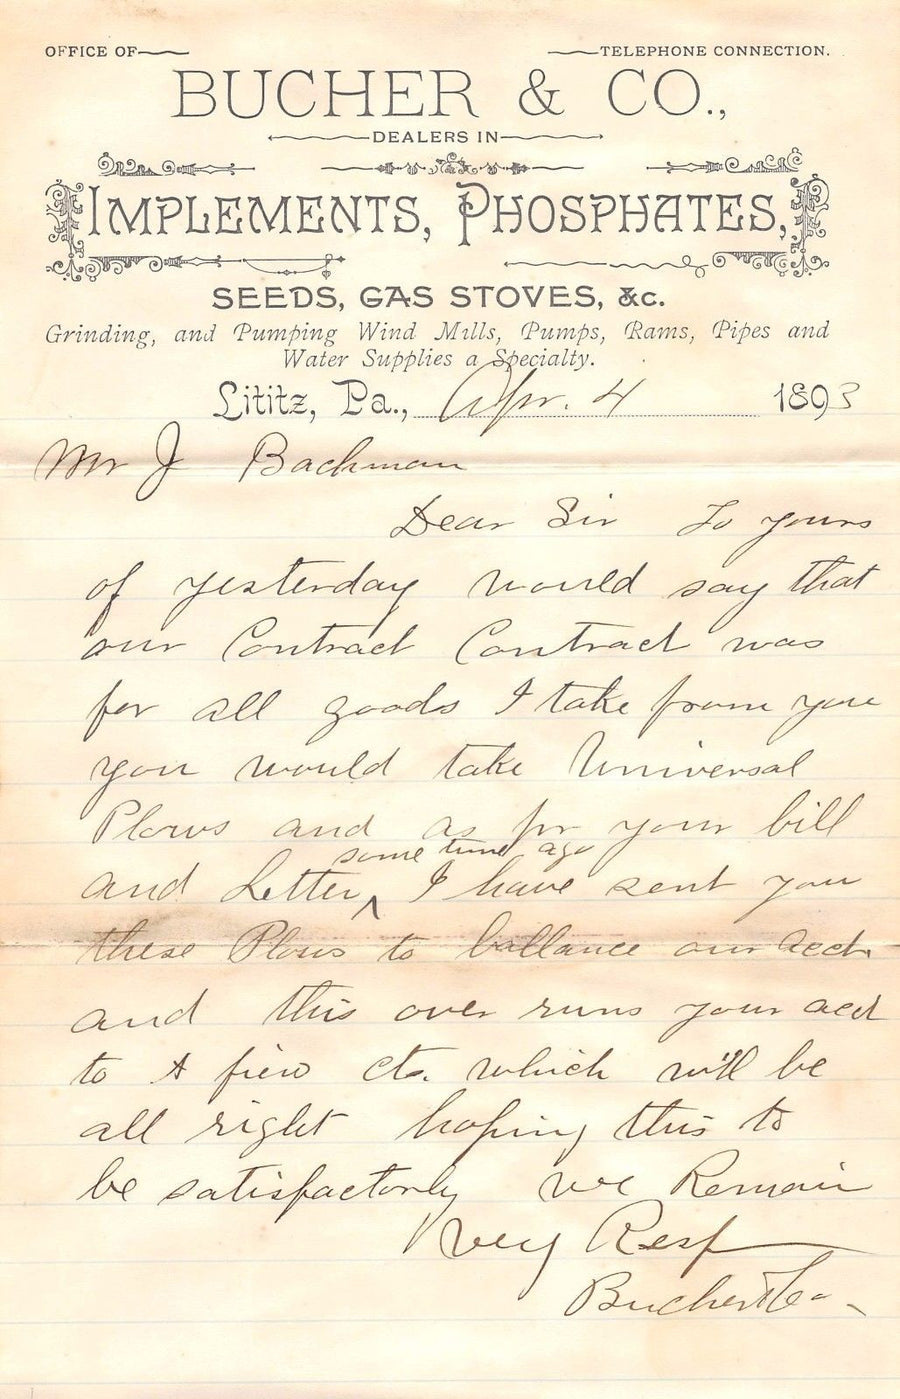 OFFICE OF TELEPHONE CONNECTION.
BUCHER & CO.,
DEALERS IN
IMPLEMENTS, PHOSPHATES,
SEEDS, GAS STOVES, &c.
Grinding, and Pumping Wind Mills, Pumps, Rams, Pipes and
Water Supplies a Specialty.
Lititz, Pa., Apr. 4 1893
Mr J Bachman
Dear Sir To yours
of yesterday would say that
our Contract Contract was
for all goods I take from you
you would take Universal
Plows and as for your bill
some time ago
and Letter ^ I have sent you
these Plows to ballance our acct.
and this over runs your acct
to A few cts. which will be
all right hoping this to
be satisfactorly we Remain
Very Resp
Bucher & Co